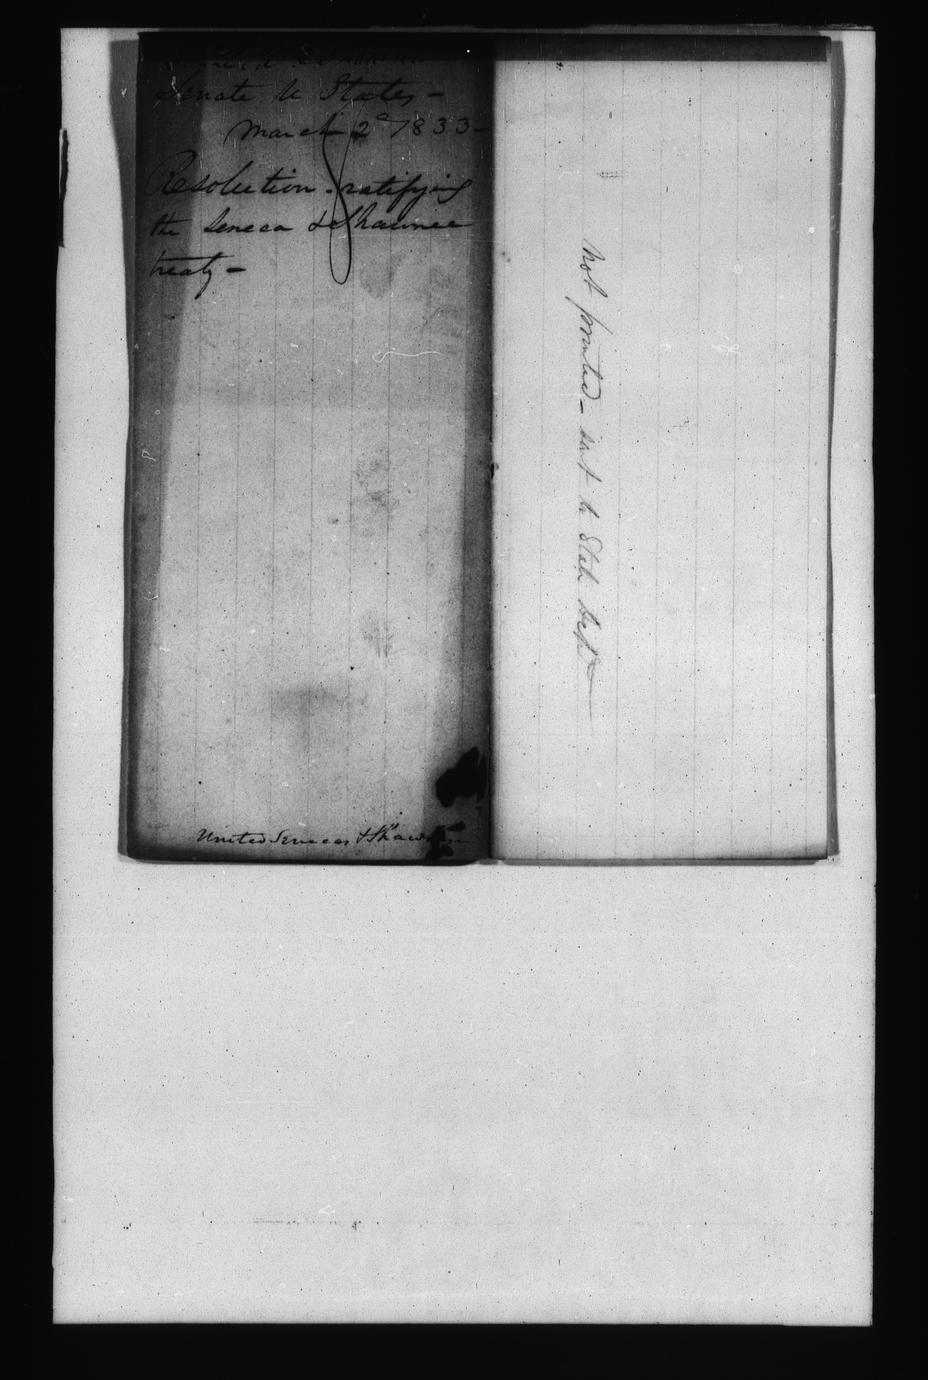 Senate U States –
March 2d 1833 –
Resolution ratifying
the Seneca & Shawnee
treaty –
United Senecas & Shaw
Not printed – sent to State Dept